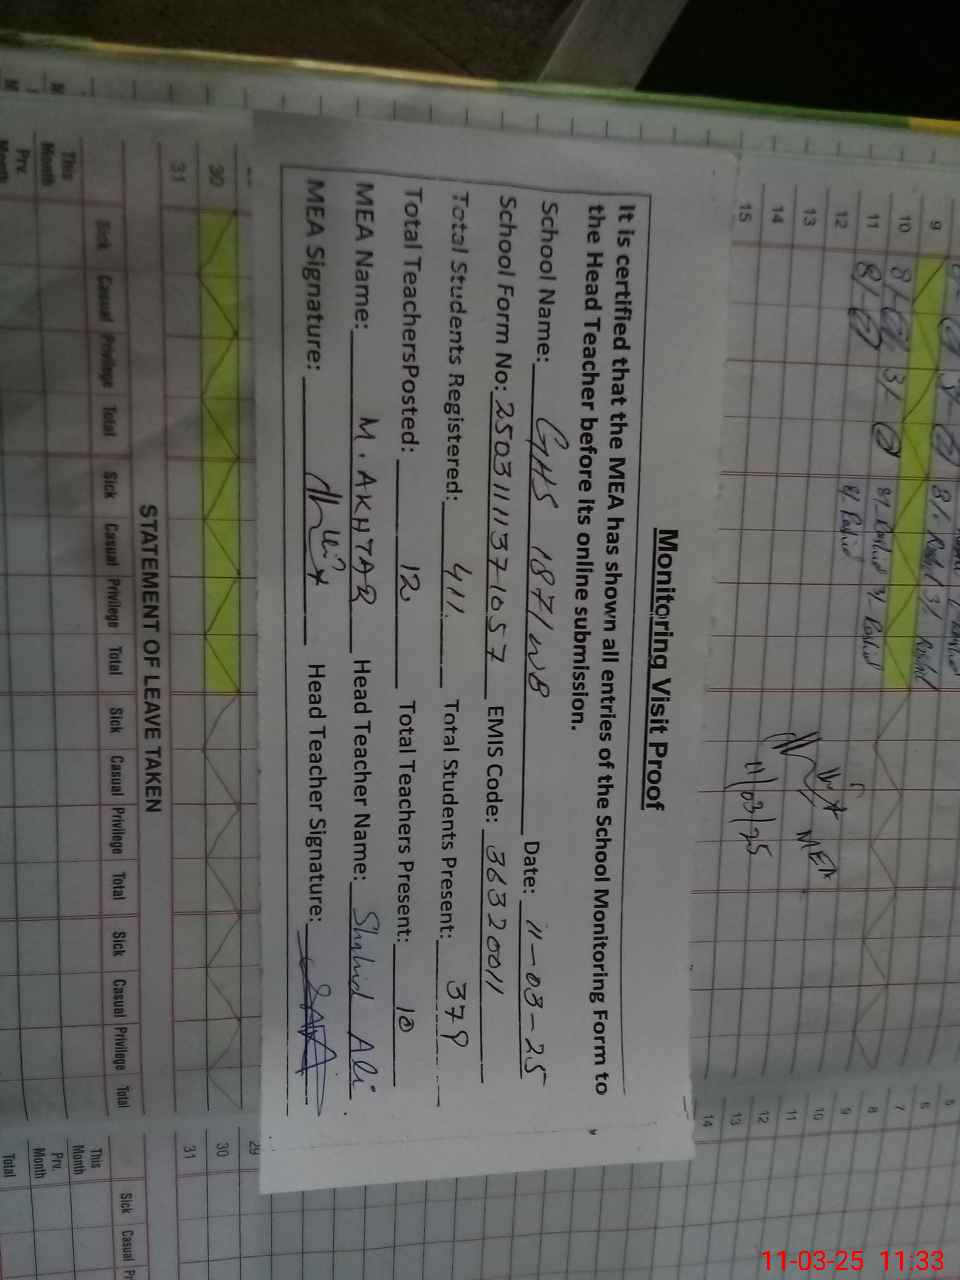 Monitoring Visit Proof
It is certified that the MEA has shown all entries of the School Monitoring Form to
the Head Teacher before its online submission.
School Name: GHS 187/WB Date: 11-03-25
School Form No: 2503111371057 EMIS Code: 36320011
Total Students Registered: 411 Total Students Present: 379
Total TeachersPosted: 12 Total Teachers Present: 10
MEA Name: M. AKHTAR Head Teacher Name: Shahid Ali
MEA Signature: Head Teacher Signature:
9
10
11
12
13
14
15
MEA
11/03/25
5
6
7
8
9
10
11
12
13
14
29
30
31
30
31
STATEMENT OF LEAVE TAKEN
Sick Casual Privilege Total Sick Casual Privilege Total Sick Casual Privilege Total Sick Casual Privilege Total
This Month
Prv. Month
This Month
Prv. Month
Total
Sick Casual
11-03-25 11:33